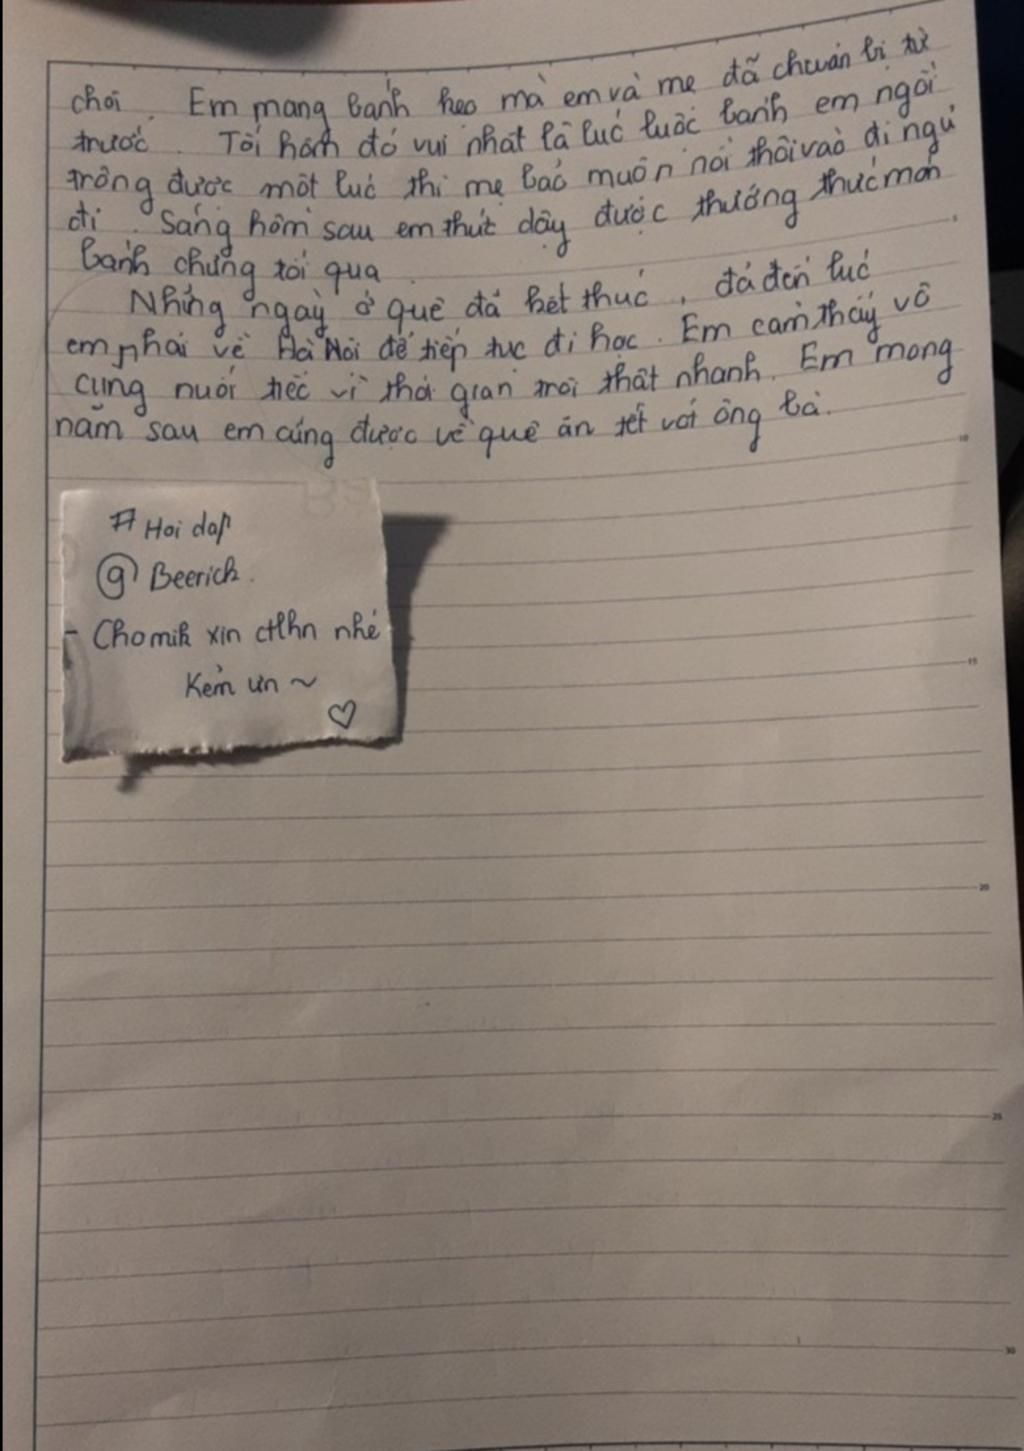 chơi. Em mang bánh kẹo mà em và mẹ đã chuẩn bị từ
trước. Tối hôm đó vui nhất là lúc luộc bánh em ngồi
trông được một lúc thì mẹ bảo muộn rồi thôi vào đi ngủ
đi. Sáng hôm sau em thức dậy được thưởng thức món
bánh chưng tối qua.
Những ngày ở quê đã kết thúc, đã đến lúc
em phải về Hà Nội để tiếp tục đi học. Em cảm thấy vô
cùng nuối tiếc vì thời gian trôi thật nhanh. Em mong
năm sau em cũng được về quê ăn tết với ông bà.
10
# Hoi dap
@ Beerich.
- Cho mik xin ctlhn nhé
15
Kẻm ưn ~
♡
20
25
30